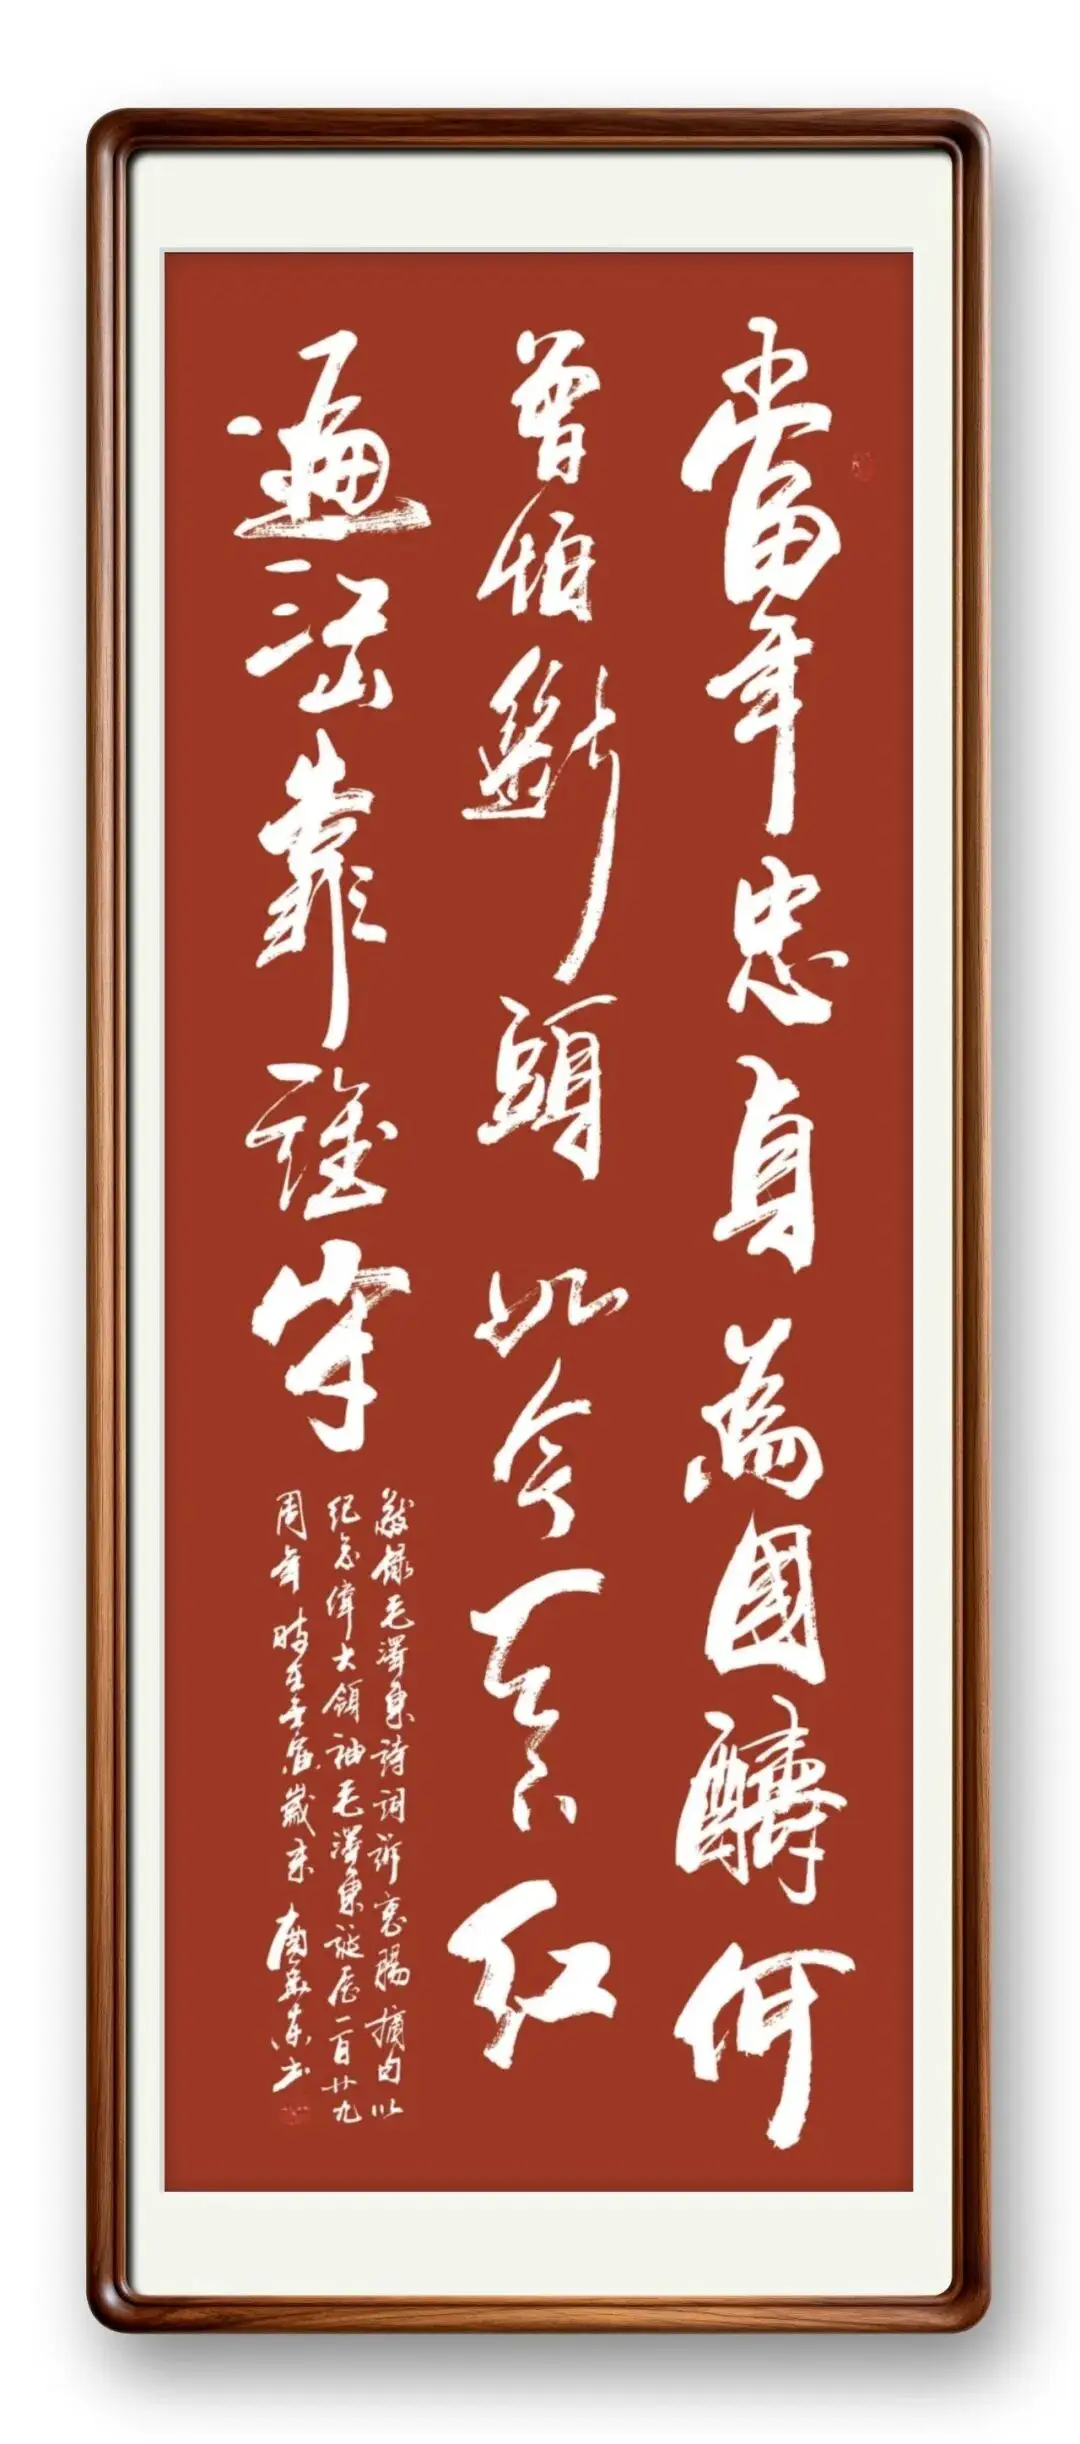 當年忠貞為國酬何
曾怕斷頭如今天下红
遍江山靠誰守
敬録毛澤東詩詞訴衷腸摘句以
紀念偉大領袖毛澤東誕辰一百廿九
周年時在壬寅歲末